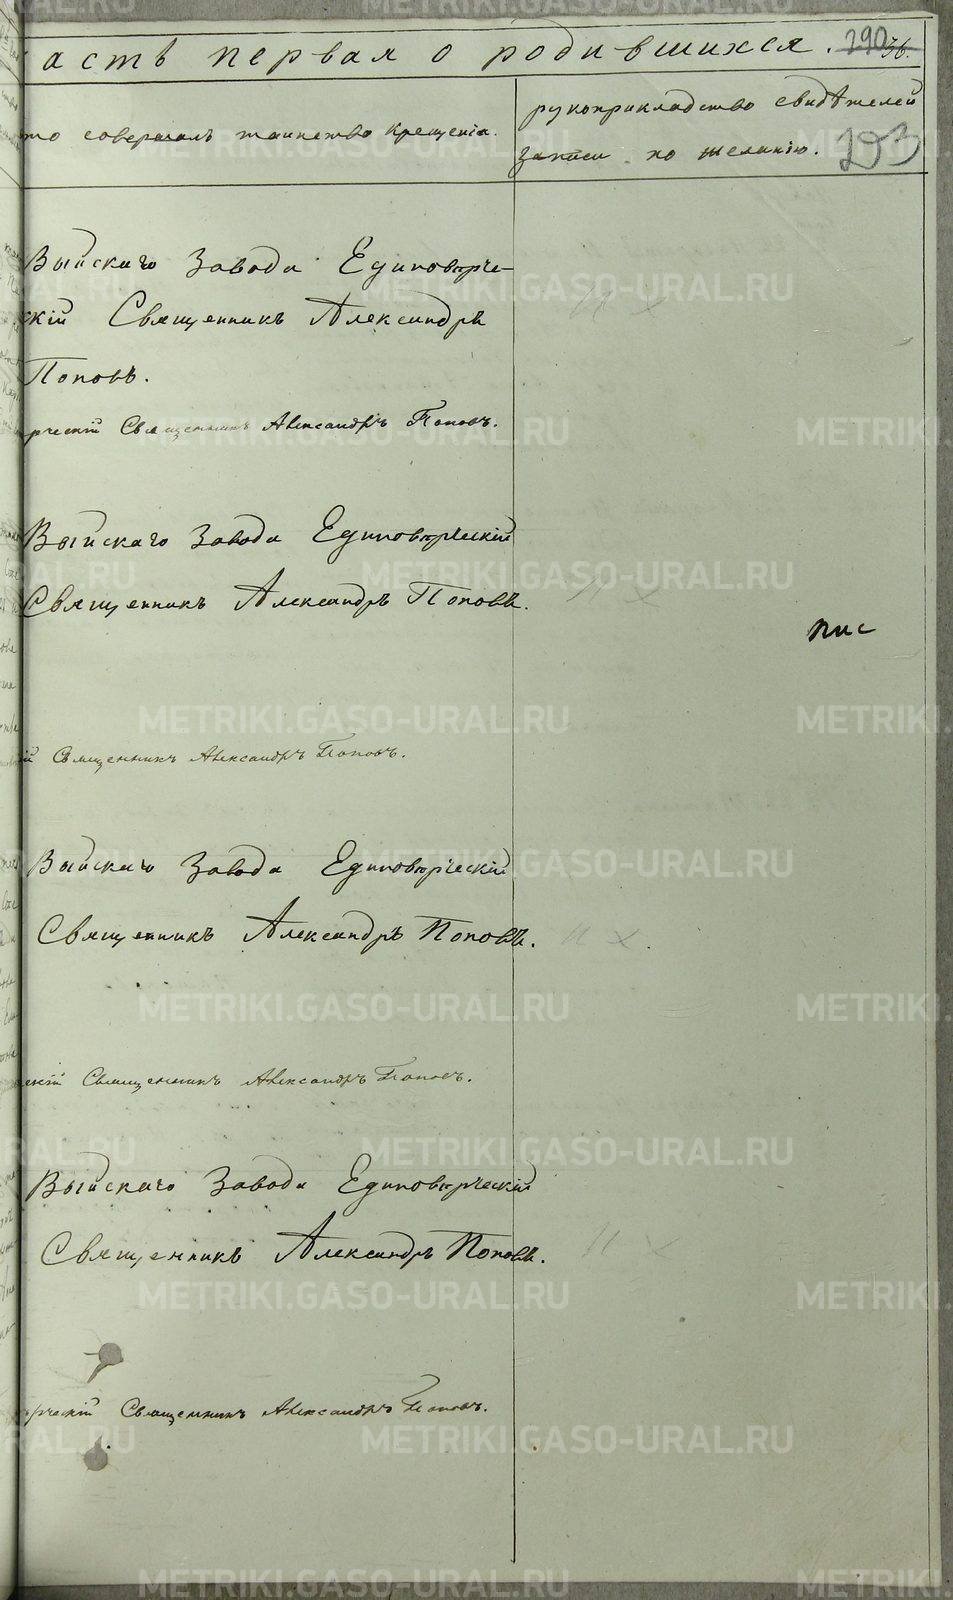 асть первая о родившихся. 290 36.
то совершалъ таинство крещенія.
рукоприкладство свидѣтелей
записи по желанію. 293
Выйскаго Завода Единовѣрче-
скій Священникъ Александръ
Поповъ.
рческій Священникъ Александръ Поповъ.
Выйскаго Завода Единовѣрческій
Священникъ Александръ Поповъ.
пис
ій Священникъ Александръ Поповъ.
Выйскаго Завода Единовѣрческій
Священникъ Александръ Поповъ.
скій Священникъ Александръ Поповъ.
Выйскаго Завода Единовѣрческій
Священникъ Александръ Поповъ.
ѣрческій Священникъ Александръ Поповъ.
METRIKI.GASO-URAL.RU